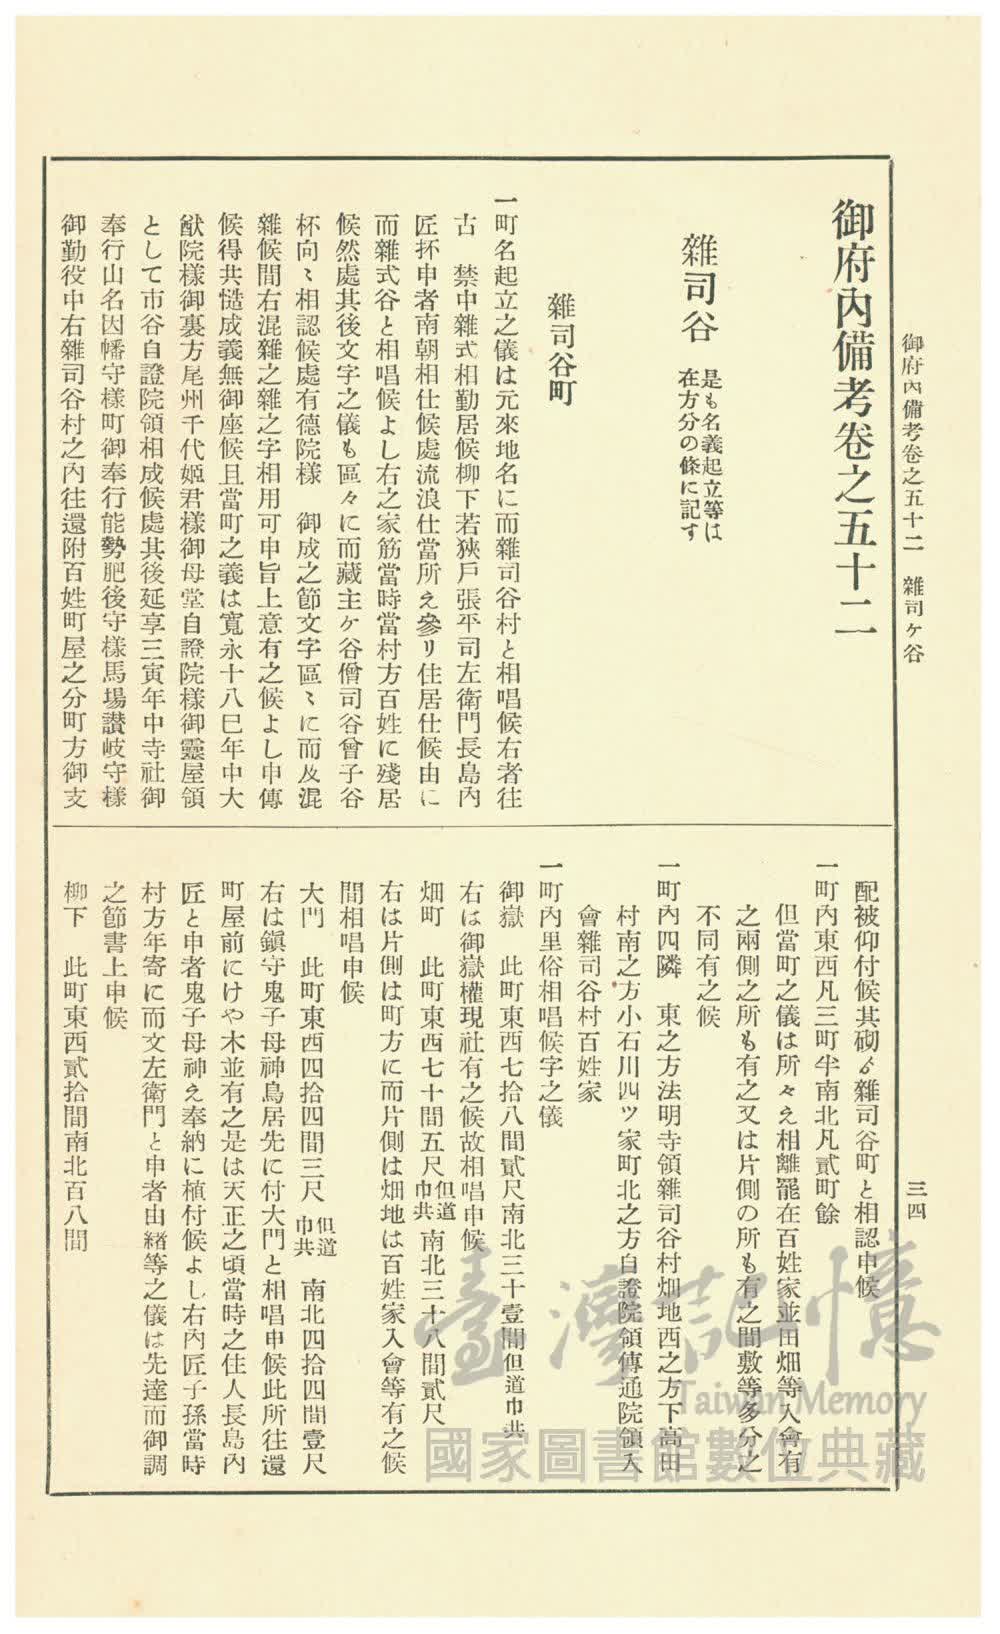 御府內備考卷之五十二　雜司ケ谷
三四
御府內備考卷之五十二
雜司谷　是も名義起立等は
在方分の條に記す
雜司谷町
一町名起立之儀は元來地名に而雜司谷村と相唱候右者往
古　禁中雜式相勤居候柳下若狹戶張平司左衞門長島內
匠抔申者南朝相仕候處流浪仕當所え參リ住居仕候由に
而雜式谷と相唱候よし右之家筋當時當村方百姓に殘居
候然處其後文字之儀も區々に而藏主ケ谷僧司谷曾子谷
杯向〻相認候處有德院樣　御成之節文字區〻に而及混
雜候間右混雜之雜之字相用可申旨上意有之候よし申傳
候得共慥成義無御座候且當町之義は寬永十八巳年中大
猷院樣御裏方尾州千代姬君樣御母堂自證院樣御靈屋領
として市谷自證院領相成候處其後延享三寅年中寺社御
奉行山名因幡守樣町御奉行能勢肥後守樣馬場讃岐守樣
御勤役中右雜司谷村之內往還附百姓町屋之分町方御支
配被仰付候其砌ゟ雜司谷町と相認申候
一町內東西凡三町半南北凡貳町餘
但當町之儀は所々え相離罷在百姓家並田畑等入會有
之兩側之所も有之又は片側の所も有之間敷等多分之
不同有之候
一町內四隣　東之方法明寺領雜司谷村畑地西之方下高田
村南之方小石川四ツ家町北之方自證院領傳通院領入
會雜司谷村百姓家
一町內里俗相唱候字之儀
御嶽　此町東西七拾八間貳尺南北三十壹間但道巾共
右は御嶽權現社有之候故相唱申候
畑町　此町東西七十間五尺但道巾共南北三十八間貳尺
右は片側は町方に而片側は畑地は百姓家入會等有之候
間相唱申候
大門　此町東西四拾四間三尺　但道巾共　南北四拾四間壹尺
右は鎭守鬼子母神鳥居先に付大門と相唱申候此所往還
町屋前にけや木並有之是は天正之頃當時之住人長島內
匠と申者鬼子母神え奉納に植付候よし右內匠子孫當時
村方年寄に而文左衞門と申者由緖等之儀は先達而御調
之節書上申候
柳下　此町東西貳拾間南北百八間
臺灣記憶
Taiwan Memory
國家圖書館數位典藏